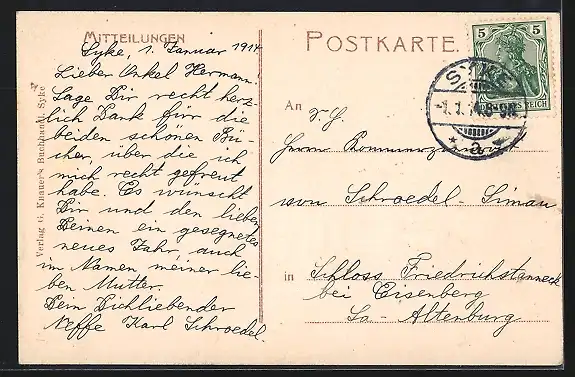 MITTEILUNGEN
Syke, 1. Januar 1914
Lieber Onkel Hermann!
Sage Dir recht herz-
lich Dank für die
beiden schönen Bü-
cher, über die ich
mich recht gefreut
habe. Es wünscht
Dir und den lieben
Deinen ein gesegnetes
neues Jahr, auch
im Namen meiner lie-
ben Mutter.
Dein Dichliebender
Neffe Karl Schroedel.
Verlag G. Knauer's Buchhandl. Syke
POSTKARTE.
5 5
DEUTSCHES REICH
SYKE
-1.1.14.8-9N.
* a *
An
S. H.
Herrn Kommerzienrat
von Schroedel-Siman
in Schloss Friedrichstanneck
bei Eisenberg
Sa-Altenburg